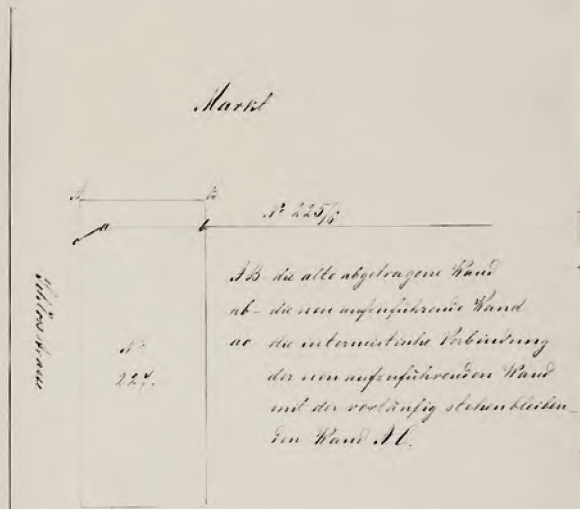 Markt
A B
No 225/6
c a b
AB die alte abgetragene Wand
ab - die neu aufzuführende Wand
ac die interimistische Verbindung
der neu aufzuführenden Wand
mit der vorläufig stehenbleiben-
den Wand AC.
No
227.